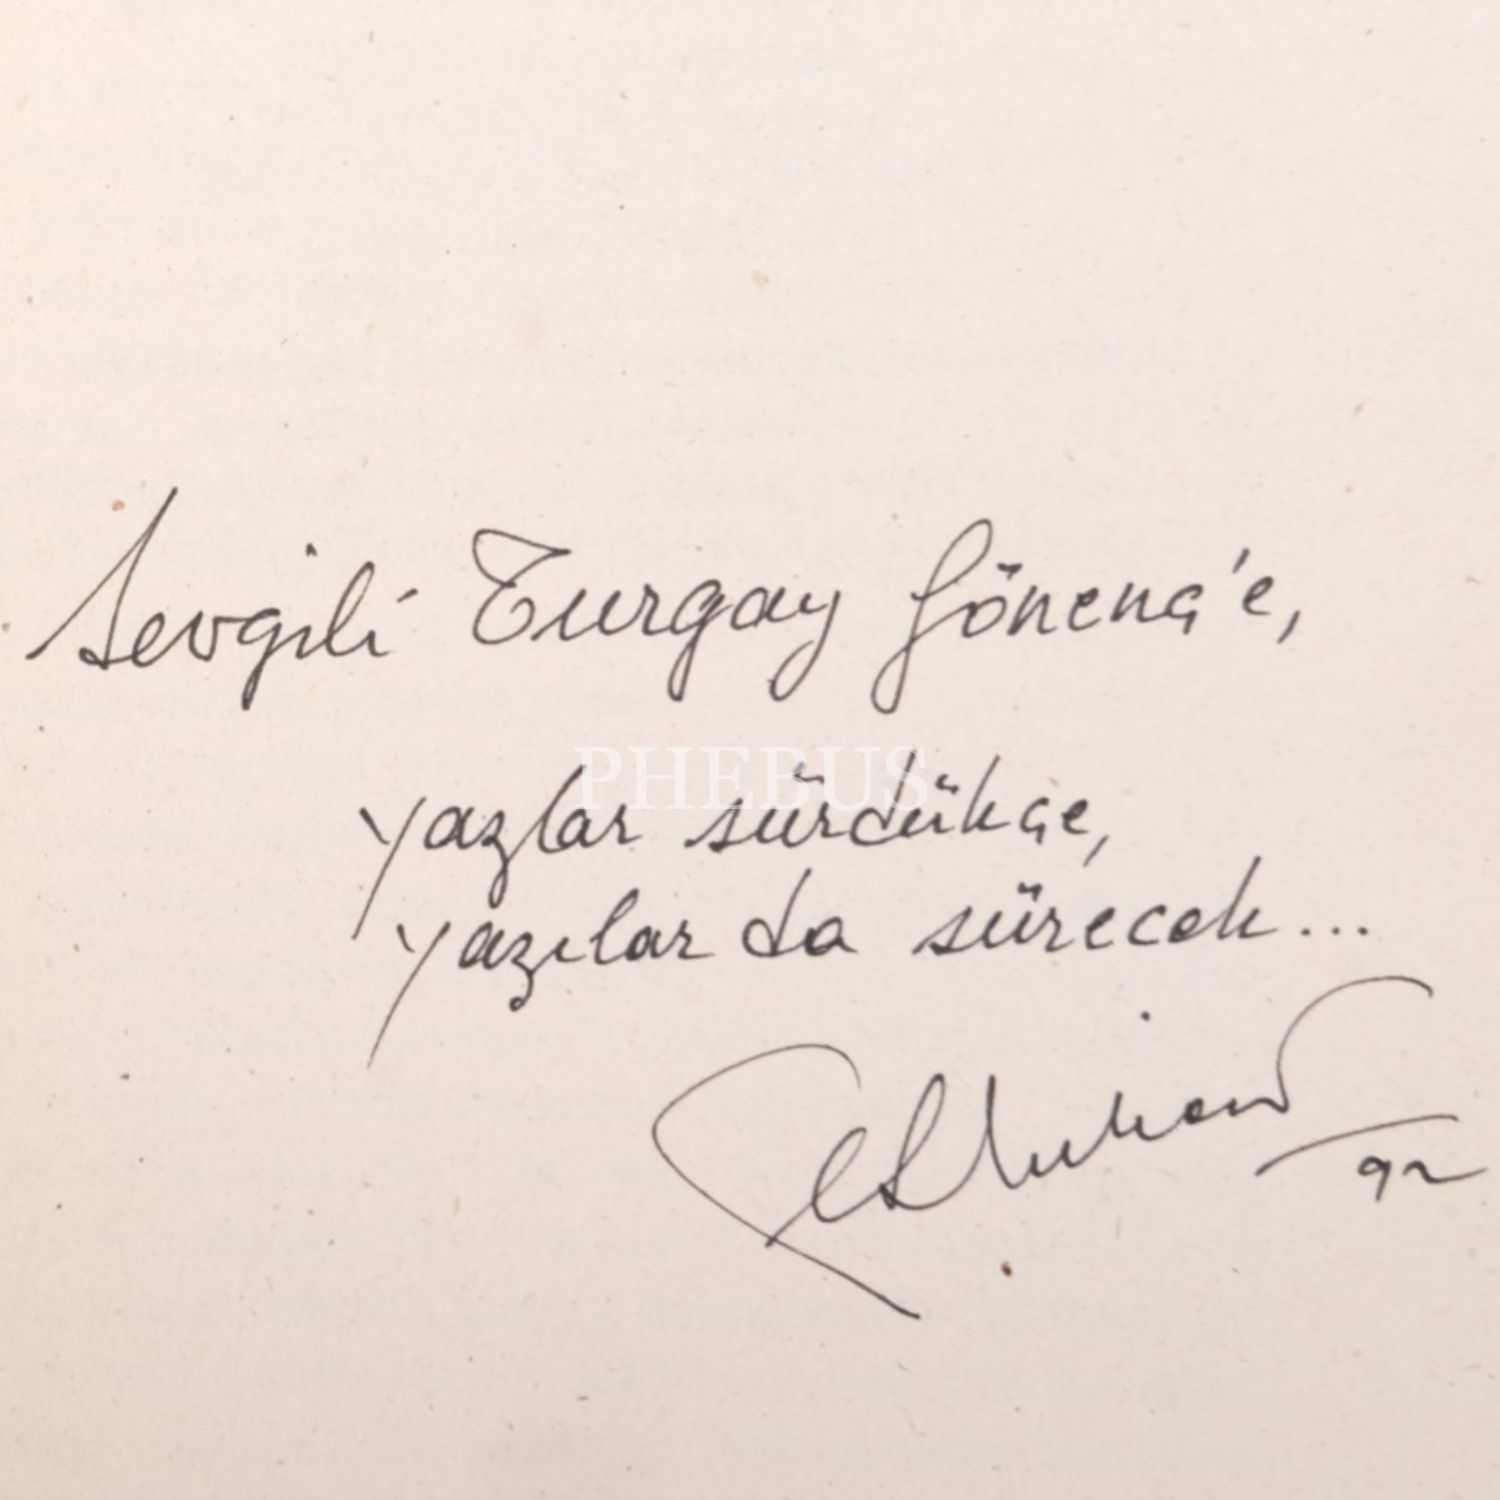 Sevgili Turgay Gönenç'e,
PHEBUS
yazlar sürdükçe,
yazılar da sürecek...
92